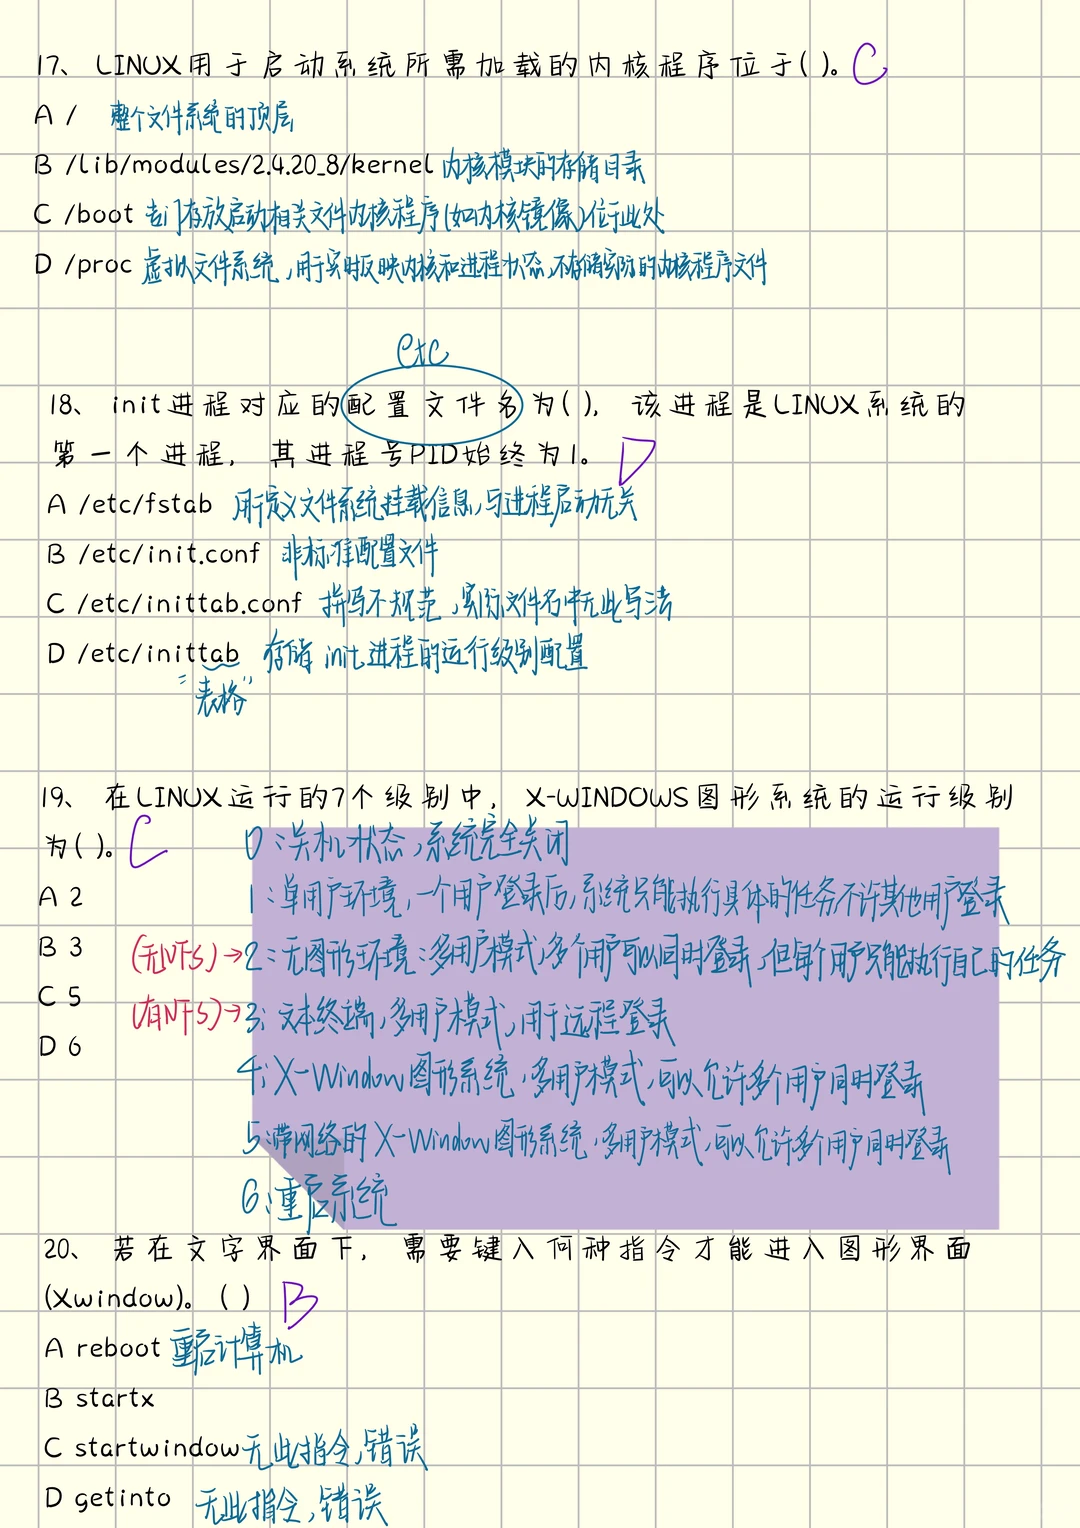 17、LINUX用于启动系统所需加载的内核程序位于( )。C
A / 整个文件系统的顶层
B /lib/modules/2.4.20_8/kernel 内核模块的存储目录
C /boot 专门存放启动相关文件内核程序(如内核镜像)位于此处
D /proc 虚拟文件系统,用于实时反映内核和进程状态,不存储实际的内核程序文件
etc
18、init进程对应的配置文件名为( ),该进程是LINUX系统的
第一个进程,其进程号PID始终为1。D
A /etc/fstab 用于定义文件系统挂载信息,与进程启动无关
B /etc/init.conf 非标准配置文件
C /etc/inittab.conf 拼写不规范,实际文件名中无此写法
D /etc/inittab 存储init进程的运行级别配置
"表格"
19、在LINUX运行的7个级别中,X-WINDOWS图形系统的运行级别
为( )。C
0:关机状态,系统完全关闭
A 2
1:单用户环境,一个用户登录后,系统只能执行具体的任务不许其他用户登录
B 3
(无NFS)→2:无图形环境:多用户模式,多个用户可以同时登录,但每个用户只能执行自己的任务
C 5
(有NFS)→3:文本终端,多用户模式,用于远程登录
D 6
4:X-Window图形系统,多用户模式,可以允许多个用户同时登录
5:带网络的X-Window图形系统,多用户模式,可以允许多个用户同时登录
6:重启系统
20、若在文字界面下,需要键入何种指令才能进入图形界面
(Xwindow)。( ) B
A reboot 重启计算机
B startx
C startwindow 无此指令,错误
D getinto 无此指令,错误